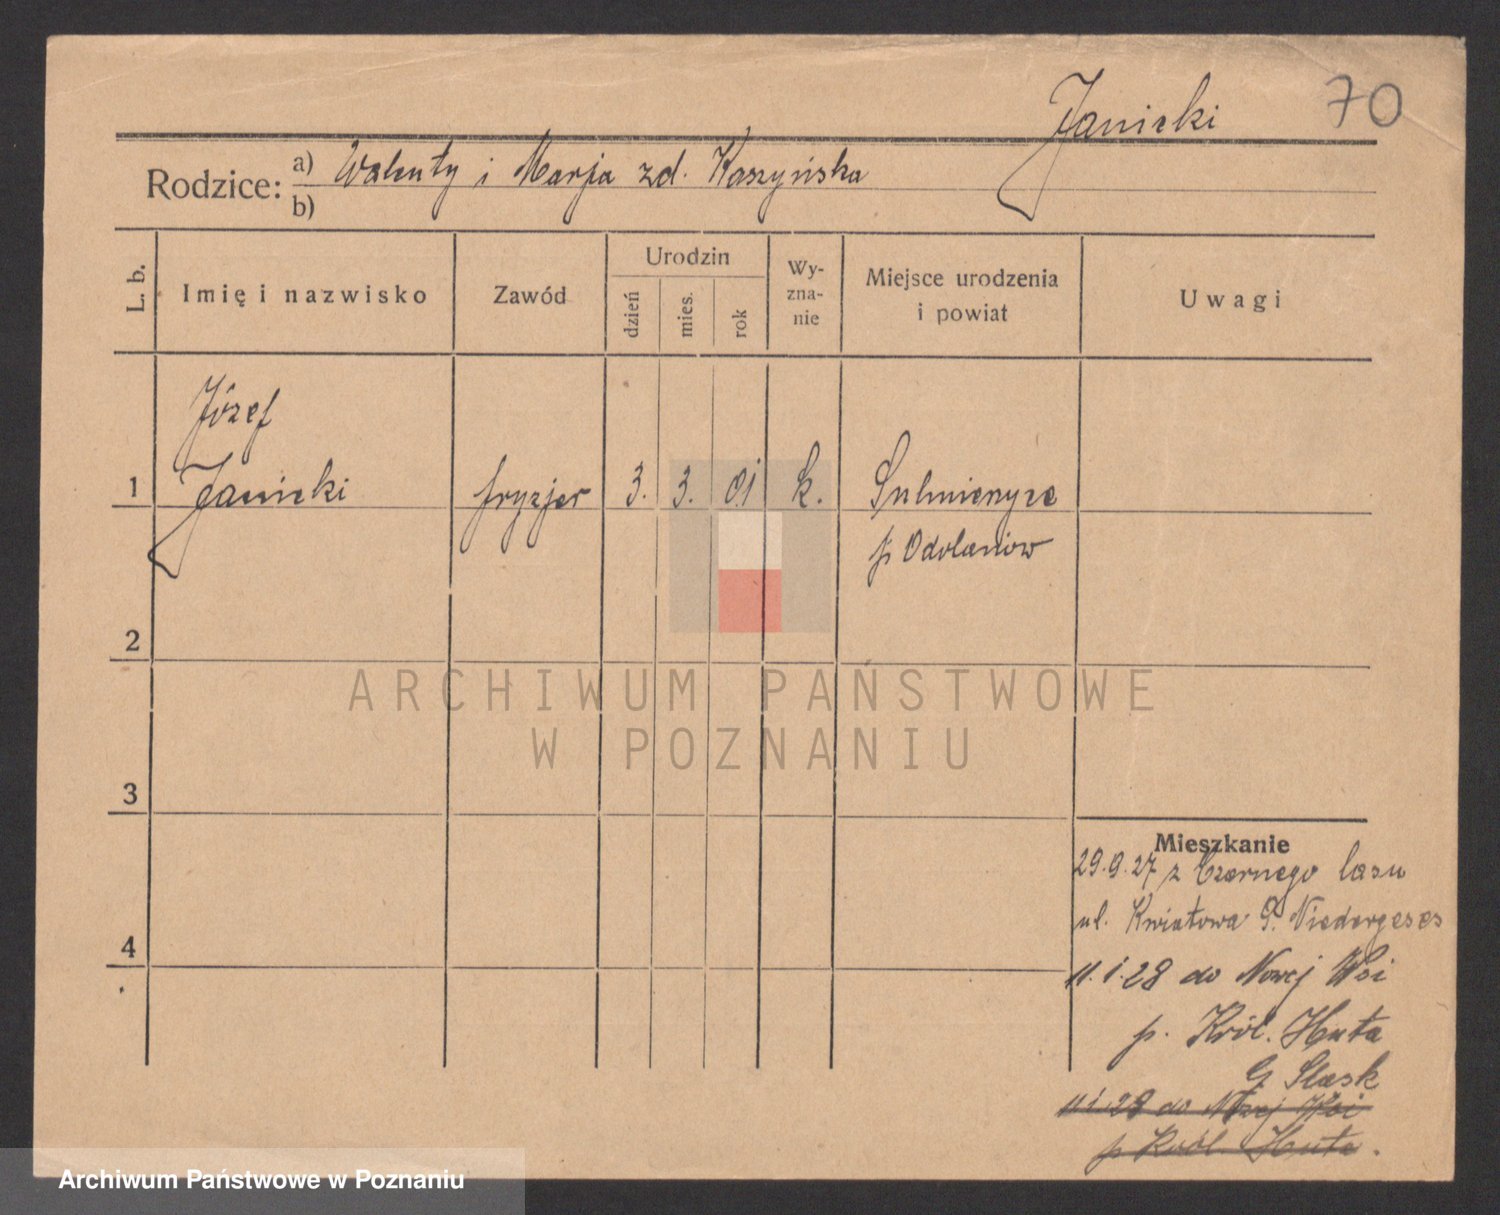 Janicki 70
Rodzice: a) Walenty i Marja zd. Kaszyńska
b)
L. b. Imię i nazwisko Zawód Urodzin dzień mies. rok Wy-zna-nie Miejsce urodzenia i powiat Uwagi
Józef
1 Janicki fryzjer 3. 3. 01 k. Sulmierzyce
p Odolanów
2
ARCHIWUM PAŃSTWOWE
W POZNANIU
3
Mieszkanie
29.9.27 z Czarnego lasu
ul. Kwiatowa
4
11.1.28 do Nowej Wsi
p. Król. Huta
G Śląsk
11 1 28 do Nowej Wsi
p Król. Huta.
Archiwum Państwowe w Poznaniu